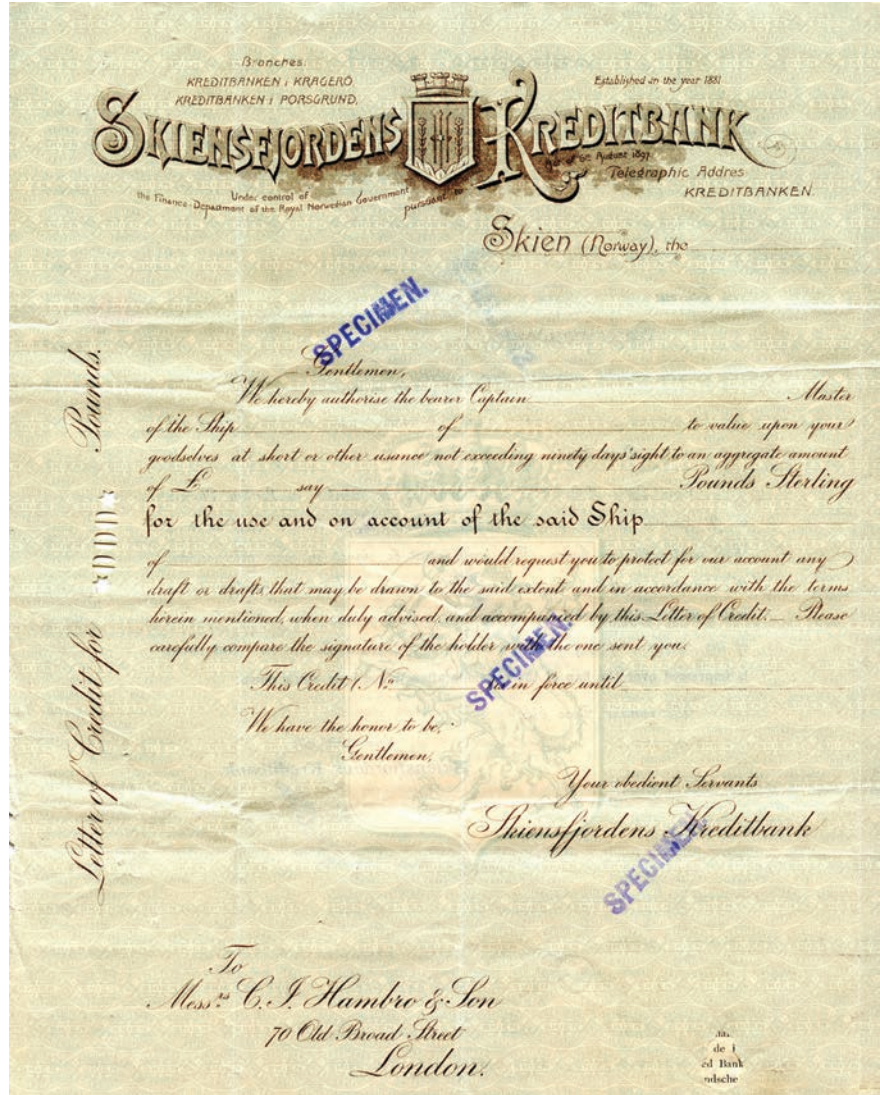 Branches:
KREDITBANKEN i KRAGERÖ
KREDITBANKEN i PORSGRUND.
Established in the year 1881
SKIENSFJORDENS KREDITBANK
Under control of
the Finance-Department of the Royal Norwegian Government
pursuant to
August 1897
Telegraphic Addres
KREDITBANKEN.
Skien (Norway), the
SPECIMEN.
Gentlemen,
We hereby authorise the bearer Captain Master
of the Ship of to value upon your
goodselves at short or other usance not exceeding ninety days' sight to an aggregate amount
of £ say Pounds Sterling
for the use and on account of the said Ship
of and would request you to protect for our account any
draft or drafts that may be drawn to the said extent and in accordance with the terms
herein mentioned, when duly advised, and accompanied by this Letter of Credit. — Please
carefully compare the signature of the holder with the one sent you.
SPECIMEN.
This Credit (No in force until
We have the honor to be,
Gentlemen,
Your obedient Servants
Skiensfjordens Kreditbank
SPECIMEN.
To
Messrs C. J. Hambro & Son
70 Old Broad Street
London.
Letter of Credit for Pounds.
de
ed Bank
ndsche